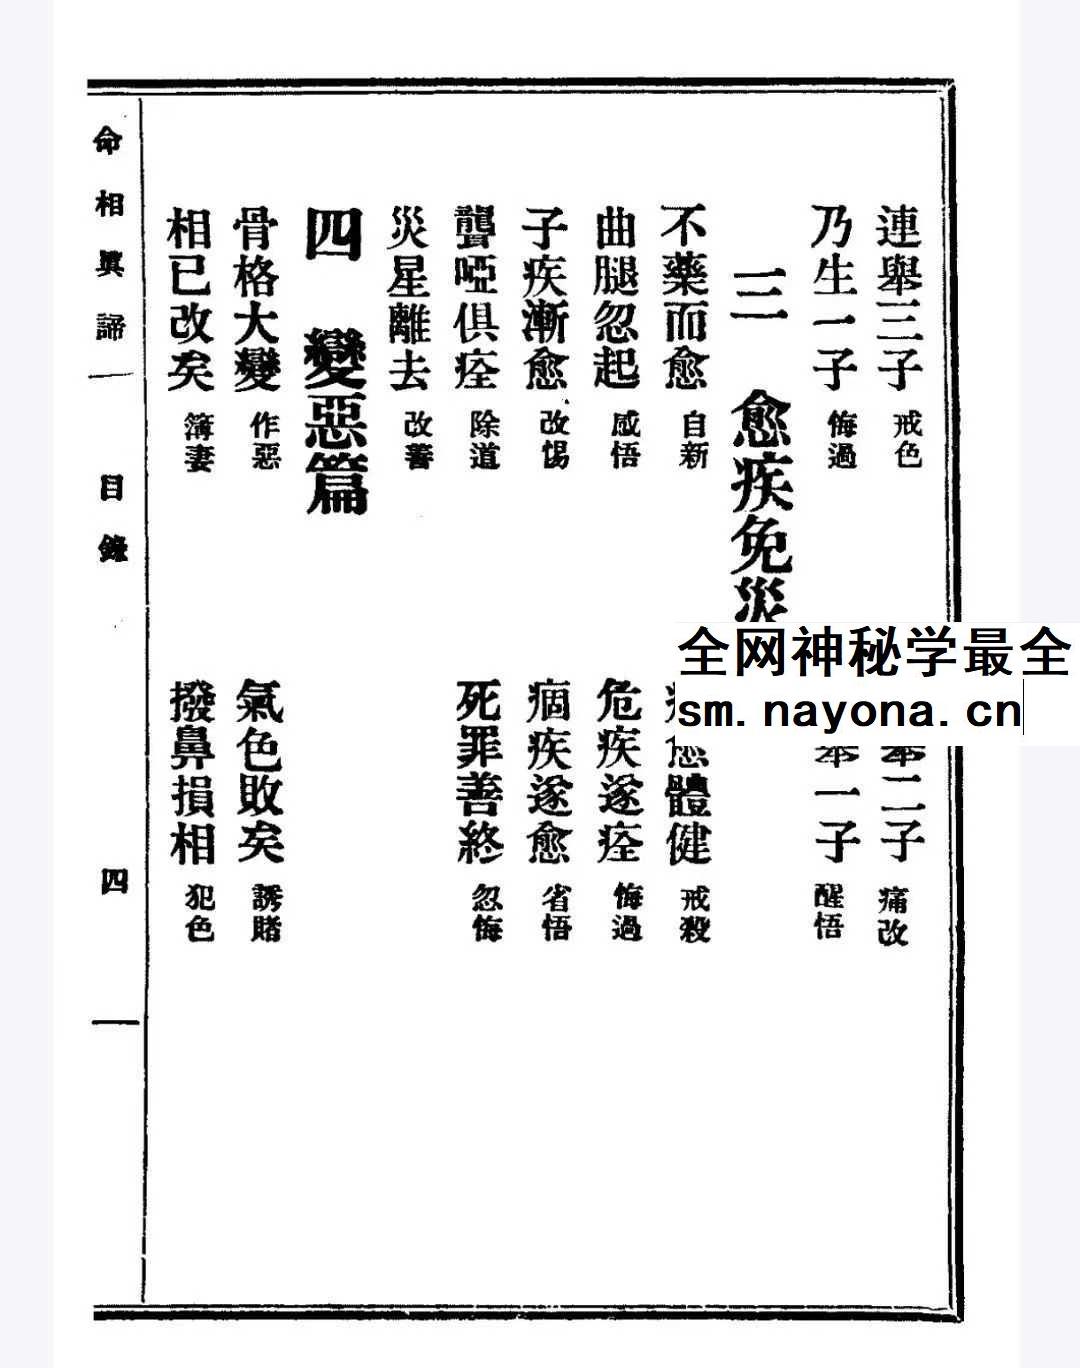 連舉三子 戒色
舉二子 痛改
乃生一子 悔過
舉一子 醒悟
三 愈疾免災
不藥而愈 自新
愈體健 戒殺
曲腿忽起 感悟
危疾遂痊 悔過
子疾漸愈 改惕
痼疾遂愈 省悟
聾啞俱痊 除道
死罪善終 忽悔
災星離去 改善
四 變惡篇
骨格大變 作惡
氣色敗矣 誘賭
相已改矣 簿妻
撥鼻損相 犯色
命相眞諦 目錄 四
全网神秘学最全
sm.nayona.cn